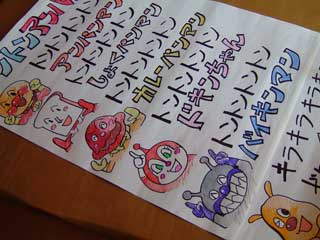 トントントントン
アンパンマン
トントントントン
しょくパンマン
トントントントン
カレーパンマン
トントントントン
ドキンちゃん
トントントントン
バイキンマン
キラキラキラキラ